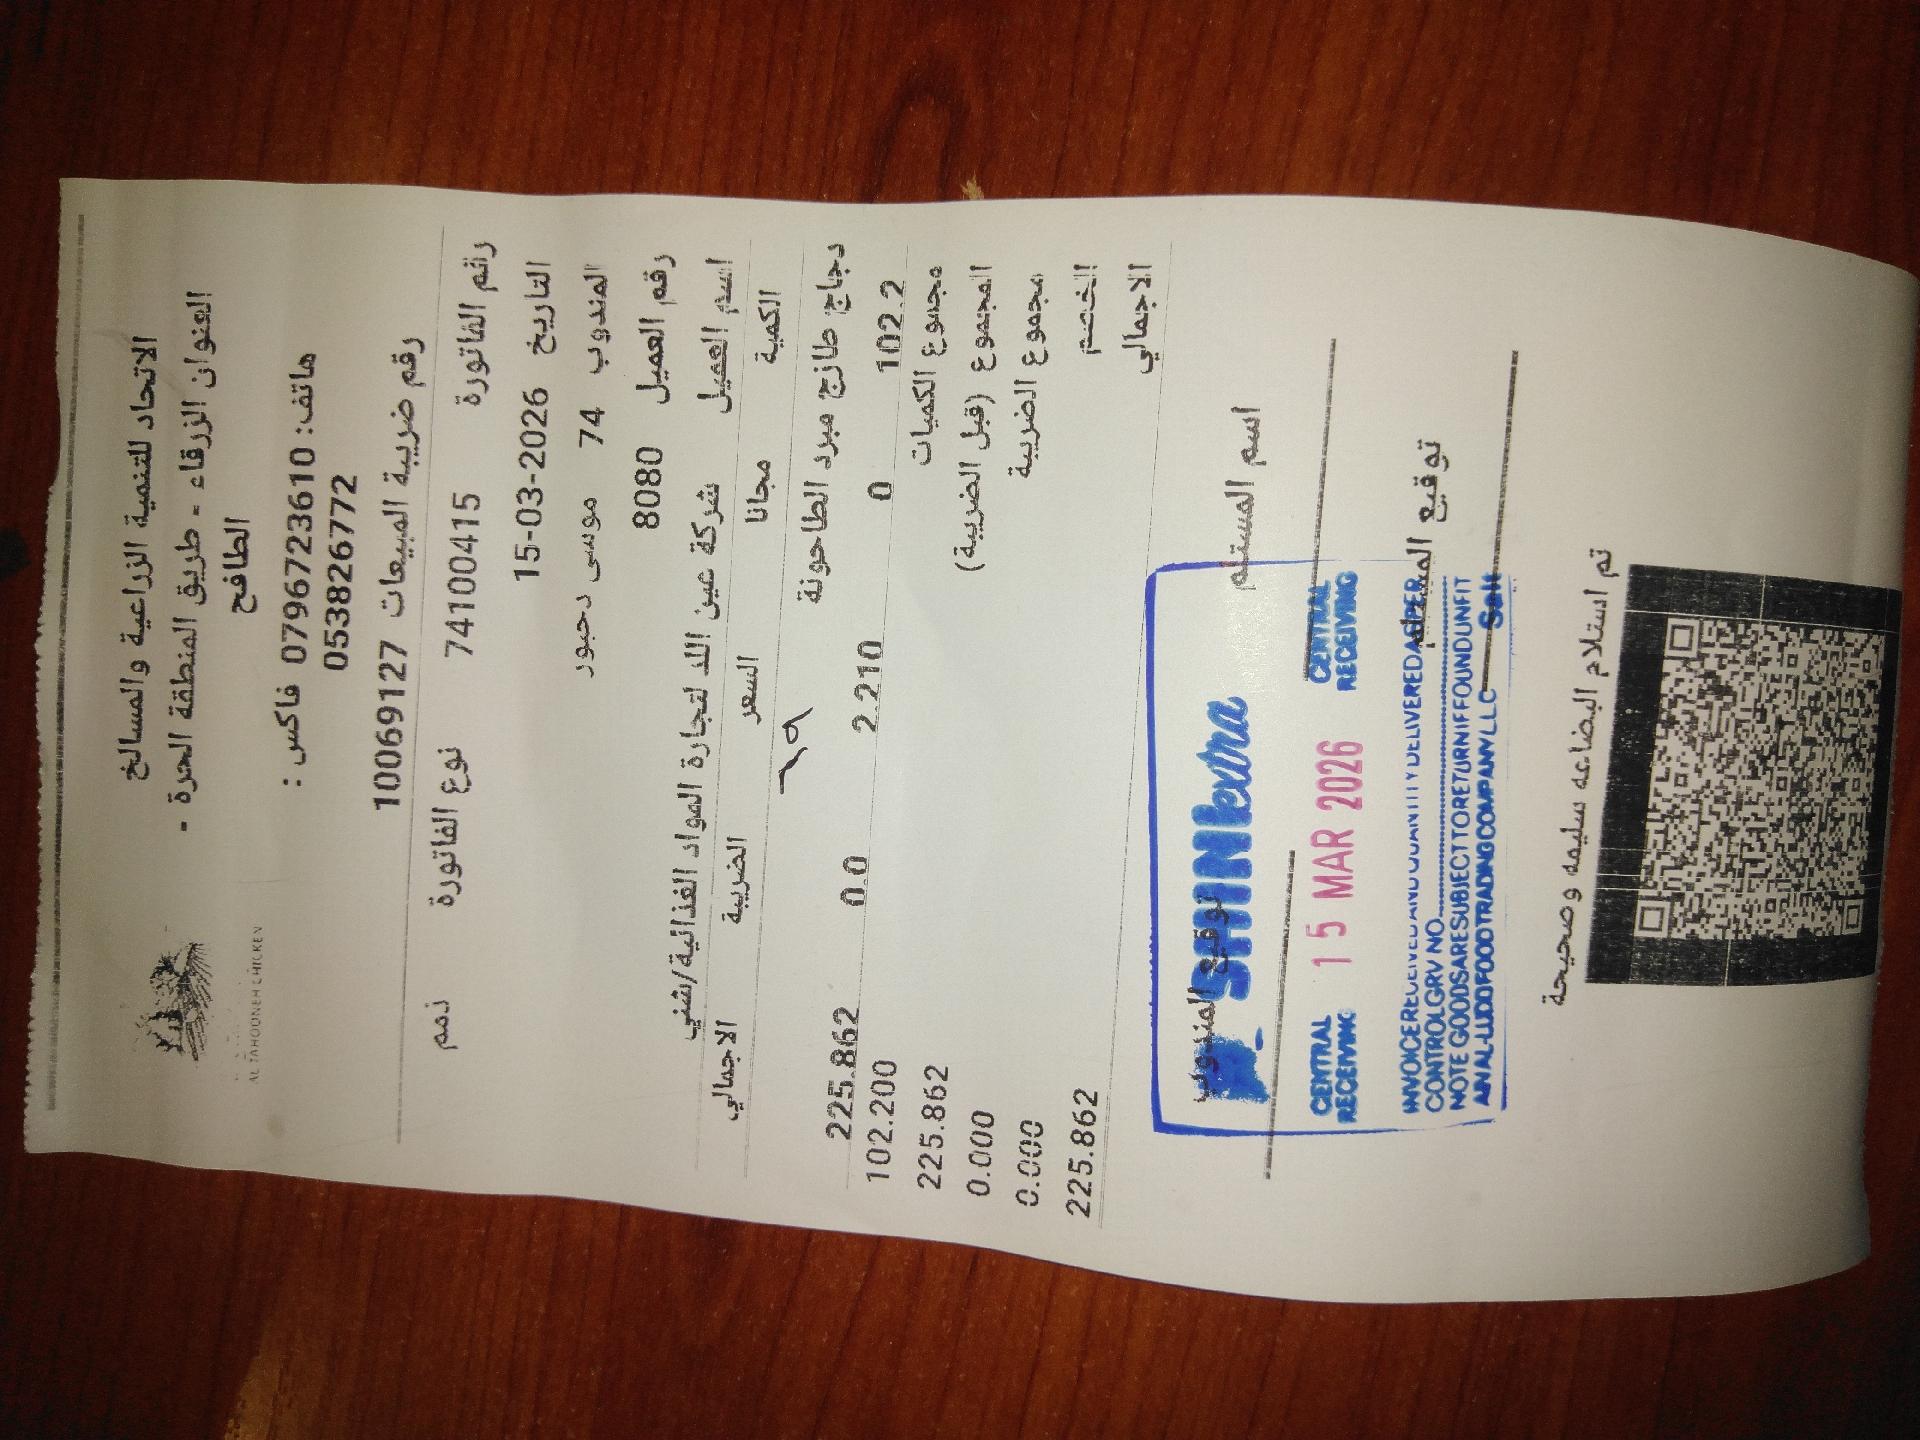 الاتحاد للتنمية الزراعية والمسالخ
العنوان الزرقاء - طريق المنطقة الحرة -
الطافح
هاتف: 0796723610 فاكس :
0538826772
رقم ضريبة المبيعات 10069127
AL TAHOONEH CHICKEN
رقم الفاتورة 74100415 نوع الفاتورة ذمم
التاريخ 15-03-2026
المندوب 74 موسى دحبور
رقم العميل 8080
اسم العميل شركة عين الد لتجارة المواد الغذائية/شني
الكمية مجانا السعر الضريبة الاجمالي
دجاج طازج مبرد الطاحونة
102.2 0 2.210 0.0 225.862
مجموع الكميات 102.200
المجموع (قبل الضريبة) 225.862
مجموع الضريبة 0.000
الخصم 0.000
الاجمالي 225.862
اسم المستلم توقيع المندوب
توقيع المستلم
extra
CENTRAL RECEIVING 15 MAR 2026 CENTRAL RECEIVING
INVOICE RECEIVED AND QUANTITY DELIVERED AS PER
CONTROL GRV NO
NOTE GOODS ARE SUBJECT TO RETURN IF FOUND UNFIT
TRADING COMPANY LLC Salt
تم استلام البضاعه سليمه وصحيحة